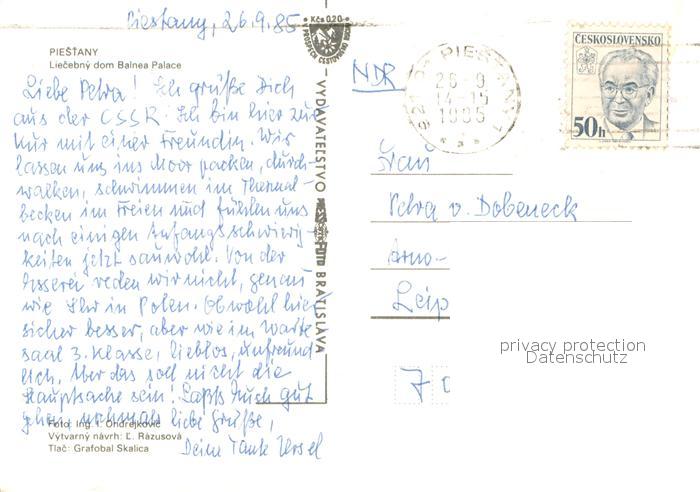 Piestany, 26.9.85
PIEŠŤANY
Liečebný dom Balnea Palace
Liebe Petra! Ich grüße Dich
aus der CSSR. Ich bin hier zur
Kur mit einer Freundin. Wir
lassen uns ins Moor packen, durch-
walken, schwimmen im Thermal-
becken im Freien und fühlen uns
nach einigen Anfangsschwierig-
keiten jetzt sauwohl. Von der
Esserei reden wir nicht, genau
wie Ihr in Polen. Obwohl hier
sicher besser, aber wie im Warte
saal 3. Klasse, lieblos, unfreund
lich. Aber das soll nicht die
Hauptsache sein! Laßts Euch gut
gehen, nochmals liebe Grüße,
Deine Tante Ursel
Foto: Ing. I. Ondrejkovič
Výtvarný návrh: Ľ. Rázusová
Tlač: Grafobal Skalica
Kčs 0,20
VYDAVATEĽSTVO
BRATISLAVA
NDR
PIEŠŤANY 1
26.-9.
14-15
1985
ČESKOSLOVENSKO
50h
Frau
Petra v. Dobeneck
Arno-
Leip
70
privacy protection
Datenschutz